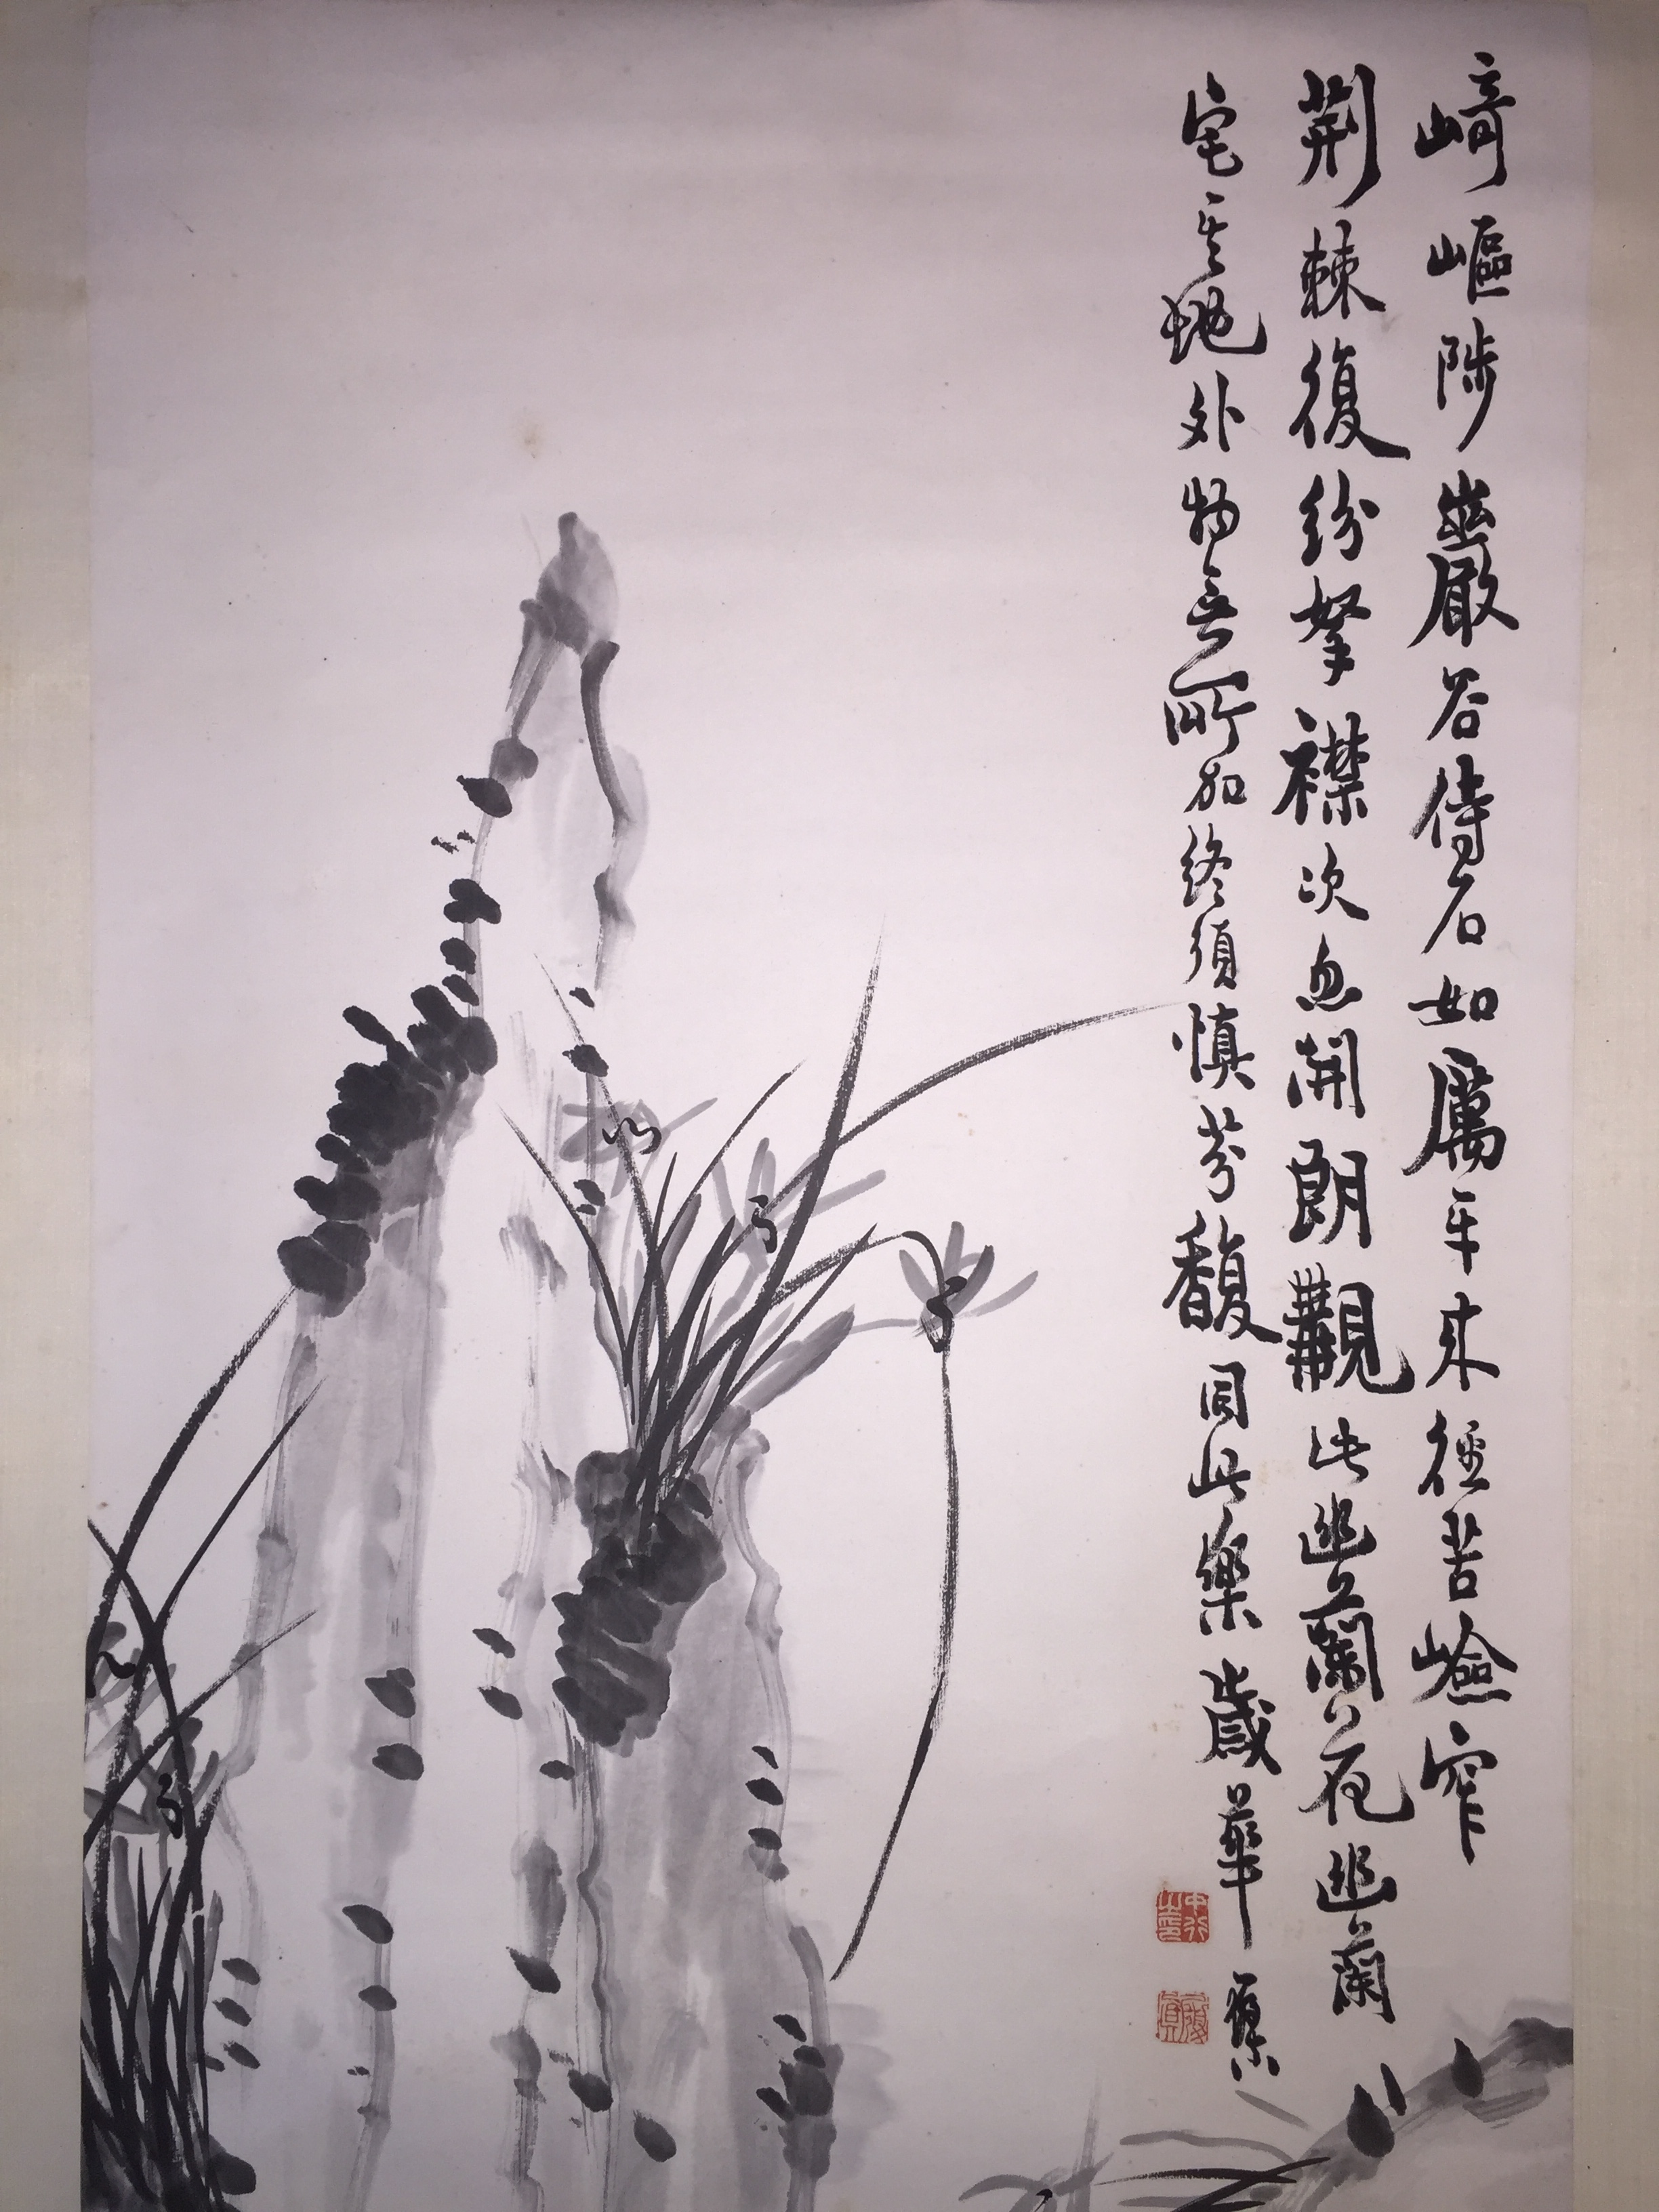 崎嶇陟巖谷倚石如厲年來徑苦嶮窄
荆棘復紛拏襟次忽開朗觀此幽蘭花幽蘭
宅其地外物無所加終須慎芬馥同此樂歲華